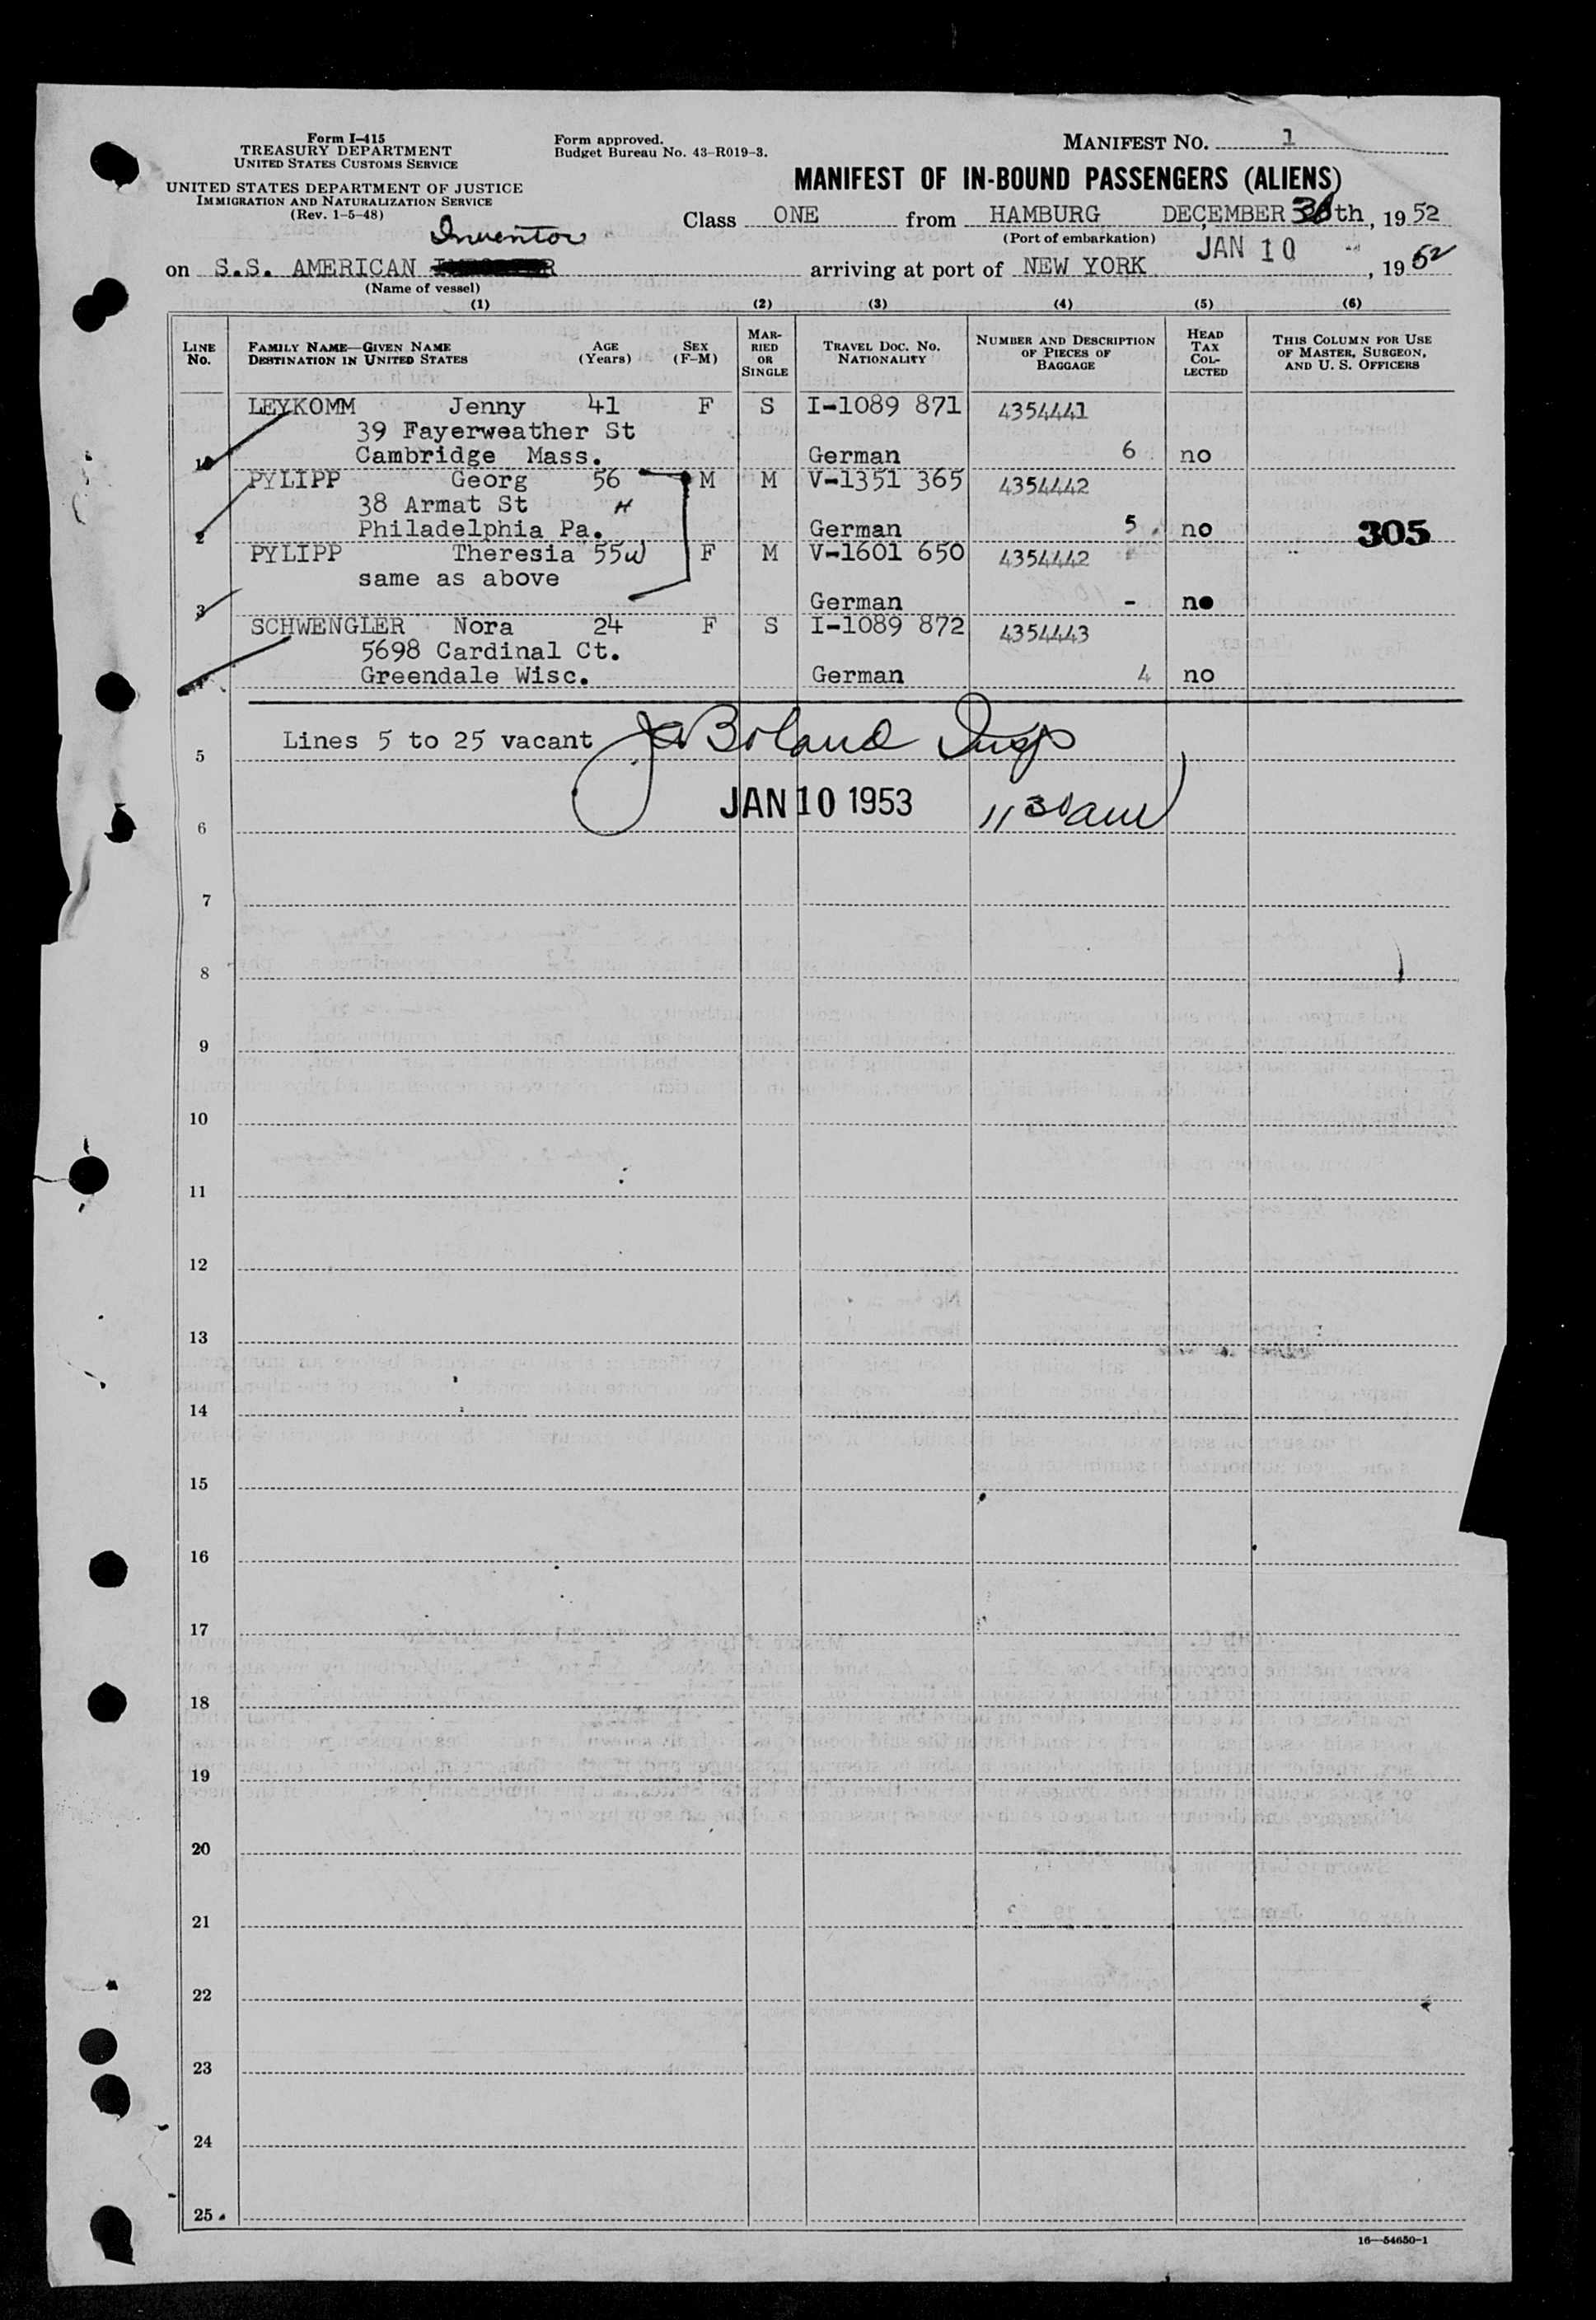 Form I-415
TREASURY DEPARTMENT
UNITED STATES CUSTOMS SERVICE
UNITED STATES DEPARTMENT OF JUSTICE
IMMIGRATION AND NATURALIZATION SERVICE
(Rev. 1-5-48)
Form approved.
Budget Bureau No. 43-R019-3.
MANIFEST NO. 1
MANIFEST OF IN-BOUND PASSENGERS (ALIENS)
Class ONE from HAMBURG DECEMBER th, 1952
(Port of embarkation)
Inventor
on S.S. AMERICAN
arriving at port of NEW YORK JAN 10, 1952
(Name of vessel)
(1) (2) (3) (4) (5) (6)
LINE No. FAMILY NAME—GIVEN NAME DESTINATION IN UNITED STATES AGE (Years) SEX (F-M) MARRIED OR SINGLE TRAVEL DOC. NO. NATIONALITY NUMBER AND DESCRIPTION OF PIECES OF BAGGAGE HEAD TAX COLLECTED THIS COLUMN FOR USE OF MASTER, SURGEON, AND U. S. OFFICERS
LEYKOMM Jenny 41 F S I-1089 871 4354441
39 Fayerweather St
1 Cambridge Mass. German 6 no
PYLIPP Georg 56 M M V-1351 365 4354442
38 Armat St H
2 Philadelphia Pa. German 5 no 305
PYLIPP Theresia 55 W F M V-1601 650 4354442
same as above
3 German - no
SCHWENGLER Nora 24 F S I-1089 872 4354443
5698 Cardinal Ct.
4 Greendale Wisc. German 4 no
5 Lines 5 to 25 vacant Ja Boland Insp
6 JAN 10 1953 11 30 am
7
8
9
10
11
12
13
14
15
16
17
18
19
20
21
22
23
24
25
16—54650-1